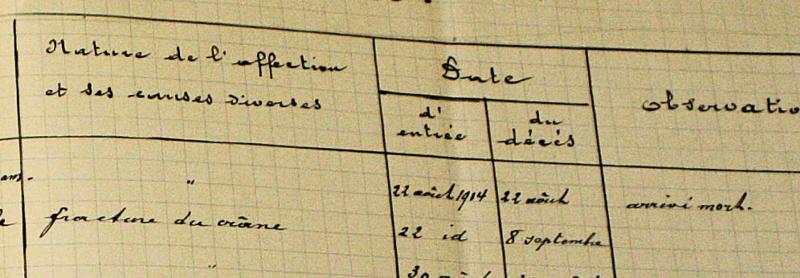 Nature de l'affection
et ses causes diverses
Date
d'
entrée
du
décès
Observatio
am.
"
22 août 1914
22 août
arrivé mort.
fracture du crâne
22 id
8 septembre
"
30